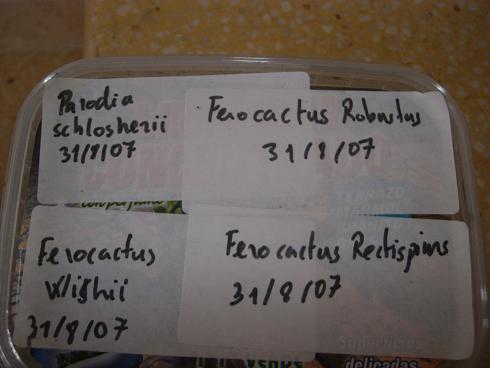 Parodia
schlosherii
31/8/07
Ferocactus Robustus
31/8/07
Ferocactus
Wlishii
31/8/07
Ferocactus Rectispins
31/8/07
TERRAZO
Superficies
delicadas